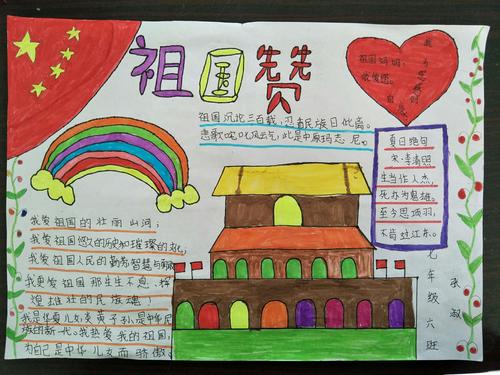 祖国赞
祖国沉沦三百载,忍看民族日仳离。
悲歌咤叱风云气,此是中原玛志尼。
祖国妈妈,
我爱您。
夏日绝句
宋·李清照
生当作人杰,
死亦为鬼雄。
至今思项羽,
不肯过江东。
我爱祖国的壮丽山河;
我爱祖国悠久的历史和璀璨的文化;
我爱祖国人民的勤劳智慧与
我更爱祖国那生生不息、辉
煌雄壮的民族魂!
我是华夏儿女炎黄子孙是
族的新一代。我热爱我的祖国,
为自己是中华儿女而骄傲。
七年级六班
张淑